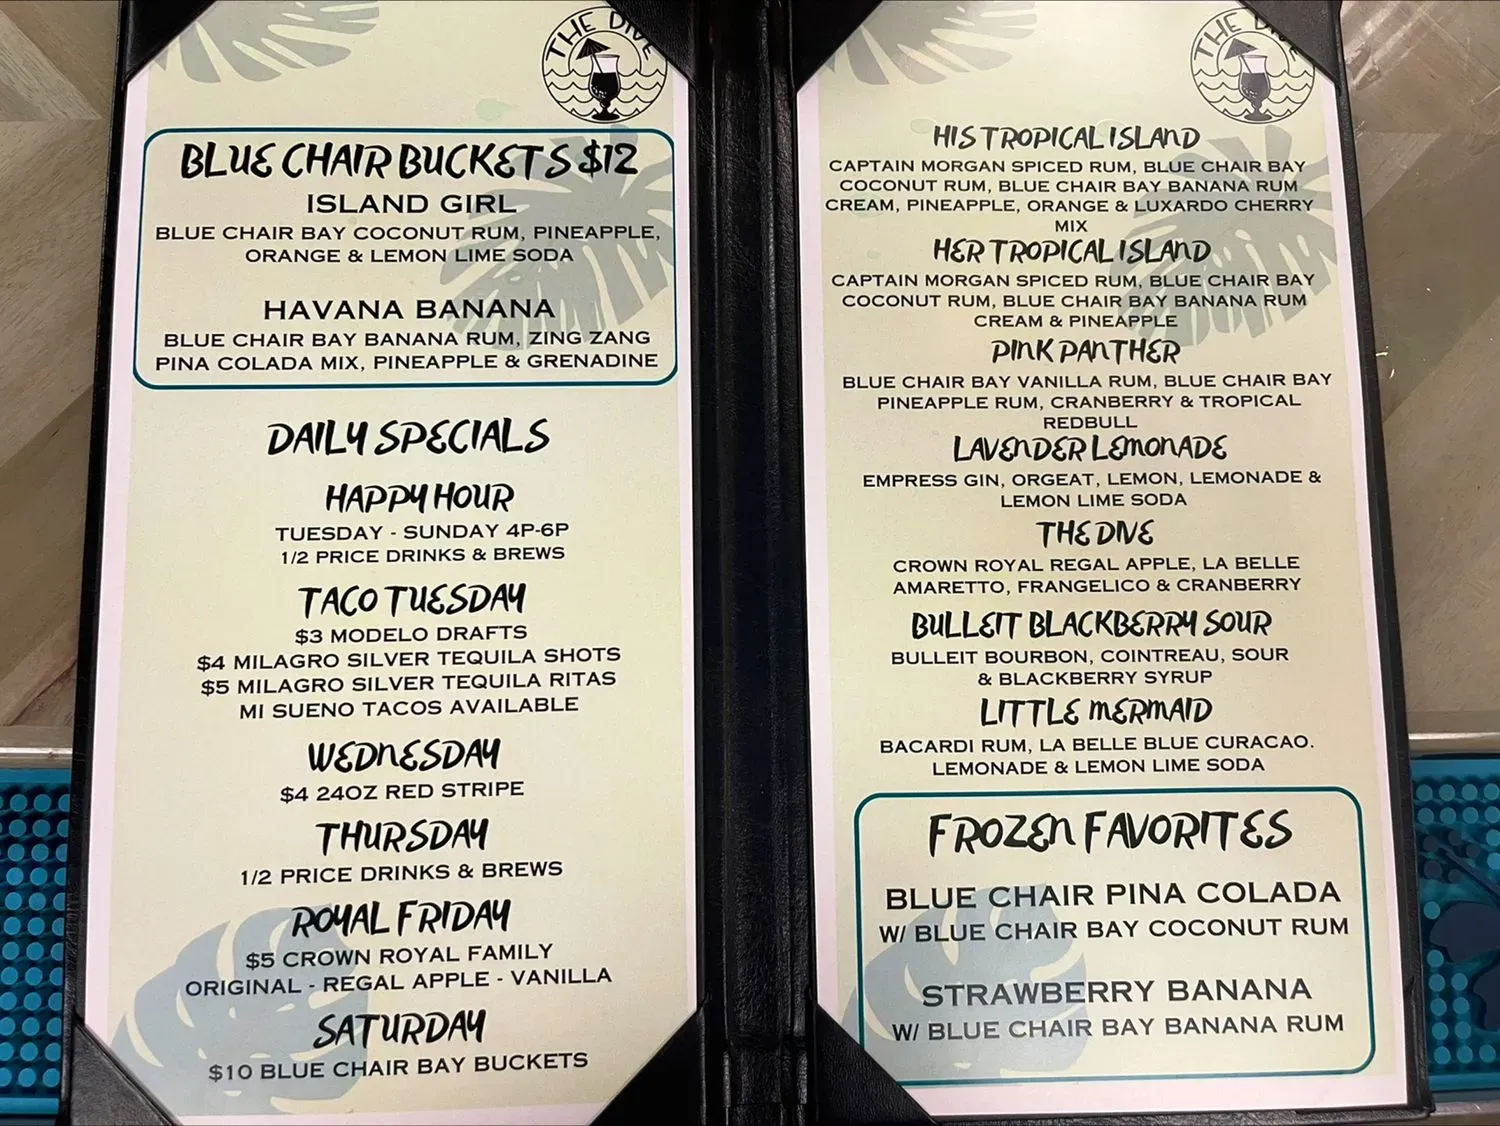 THE DIVE
BLUE CHAIR BUCKETS $12
ISLAND GIRL
BLUE CHAIR BAY COCONUT RUM, PINEAPPLE,
ORANGE & LEMON LIME SODA
HAVANA BANANA
BLUE CHAIR BAY BANANA RUM, ZING ZANG
PINA COLADA MIX, PINEAPPLE & GRENADINE
DAILY SPECIALS
HAPPY HOUR
TUESDAY - SUNDAY 4P-6P
1/2 PRICE DRINKS & BREWS
TACO TUESDAY
$3 MODELO DRAFTS
$4 MILAGRO SILVER TEQUILA SHOTS
$5 MILAGRO SILVER TEQUILA RITAS
MI SUENO TACOS AVAILABLE
WEDNESDAY
$4 24OZ RED STRIPE
THURSDAY
1/2 PRICE DRINKS & BREWS
ROYAL FRIDAY
$5 CROWN ROYAL FAMILY
ORIGINAL - REGAL APPLE - VANILLA
SATURDAY
$10 BLUE CHAIR BAY BUCKETS
THE DIVE
HIS TROPICAL ISLAND
CAPTAIN MORGAN SPICED RUM, BLUE CHAIR BAY
COCONUT RUM, BLUE CHAIR BAY BANANA RUM
CREAM, PINEAPPLE, ORANGE & LUXARDO CHERRY
MIX
HER TROPICAL ISLAND
CAPTAIN MORGAN SPICED RUM, BLUE CHAIR BAY
COCONUT RUM, BLUE CHAIR BAY BANANA RUM
CREAM & PINEAPPLE
PINK PANTHER
BLUE CHAIR BAY VANILLA RUM, BLUE CHAIR BAY
PINEAPPLE RUM, CRANBERRY & TROPICAL
REDBULL
LAVENDER LEMONADE
EMPRESS GIN, ORGEAT, LEMON, LEMONADE &
LEMON LIME SODA
THE DIVE
CROWN ROYAL REGAL APPLE, LA BELLE
AMARETTO, FRANGELICO & CRANBERRY
BULLEIT BLACKBERRY SOUR
BULLEIT BOURBON, COINTREAU, SOUR
& BLACKBERRY SYRUP
LITTLE MERMAID
BACARDI RUM, LA BELLE BLUE CURACAO.
LEMONADE & LEMON LIME SODA
FROZEN FAVORITES
BLUE CHAIR PINA COLADA
W/ BLUE CHAIR BAY COCONUT RUM
STRAWBERRY BANANA
W/ BLUE CHAIR BAY BANANA RUM